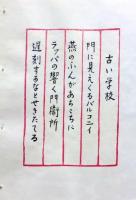 古い学校
門に見えくるバルコニイ
燕のふんがあちこちに
ラッパの響く門衛所
遅刻するなとせきたてる